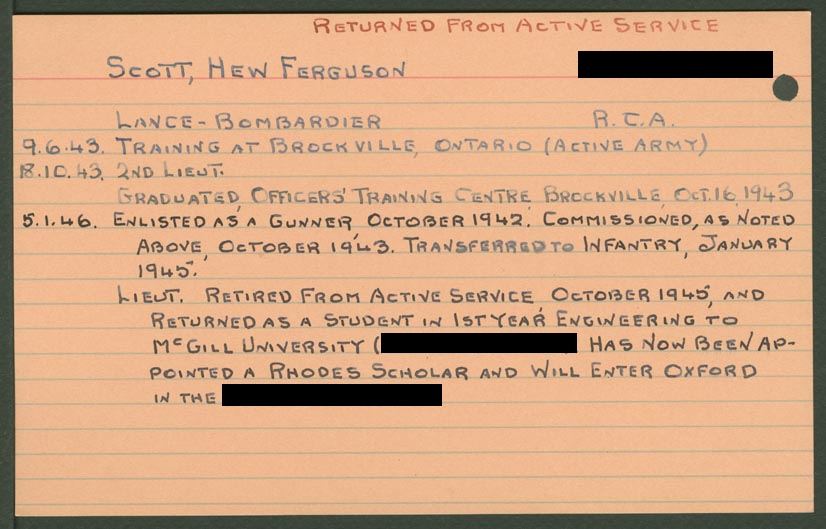 RETURNED FROM ACTIVE SERVICE
SCOTT, HEW FERGUSON
LANCE-BOMBARDIER R.C.A.
9.6.43. TRAINING AT BROCKVILLE, ONTARIO (ACTIVE ARMY)
18.10.43. 2ND LIEUT.
GRADUATED, OFFICERS' TRAINING CENTRE, BROCKVILLE, OCT.16,1943
5.1.46. ENLISTED AS A GUNNER OCTOBER 1942. COMMISSIONED, AS NOTED
ABOVE, OCTOBER 1943. TRANSFERRED TO INFANTRY, JANUARY
1945.
LIEUT. RETIRED FROM ACTIVE SERVICE, OCTOBER 1945, AND
RETURNED AS A STUDENT IN 1ST YEAR ENGINEERING TO
MCGILL UNIVERSITY ( HAS NOW BEEN AP-
POINTED A RHODES SCHOLAR AND WILL ENTER OXFORD
IN THE